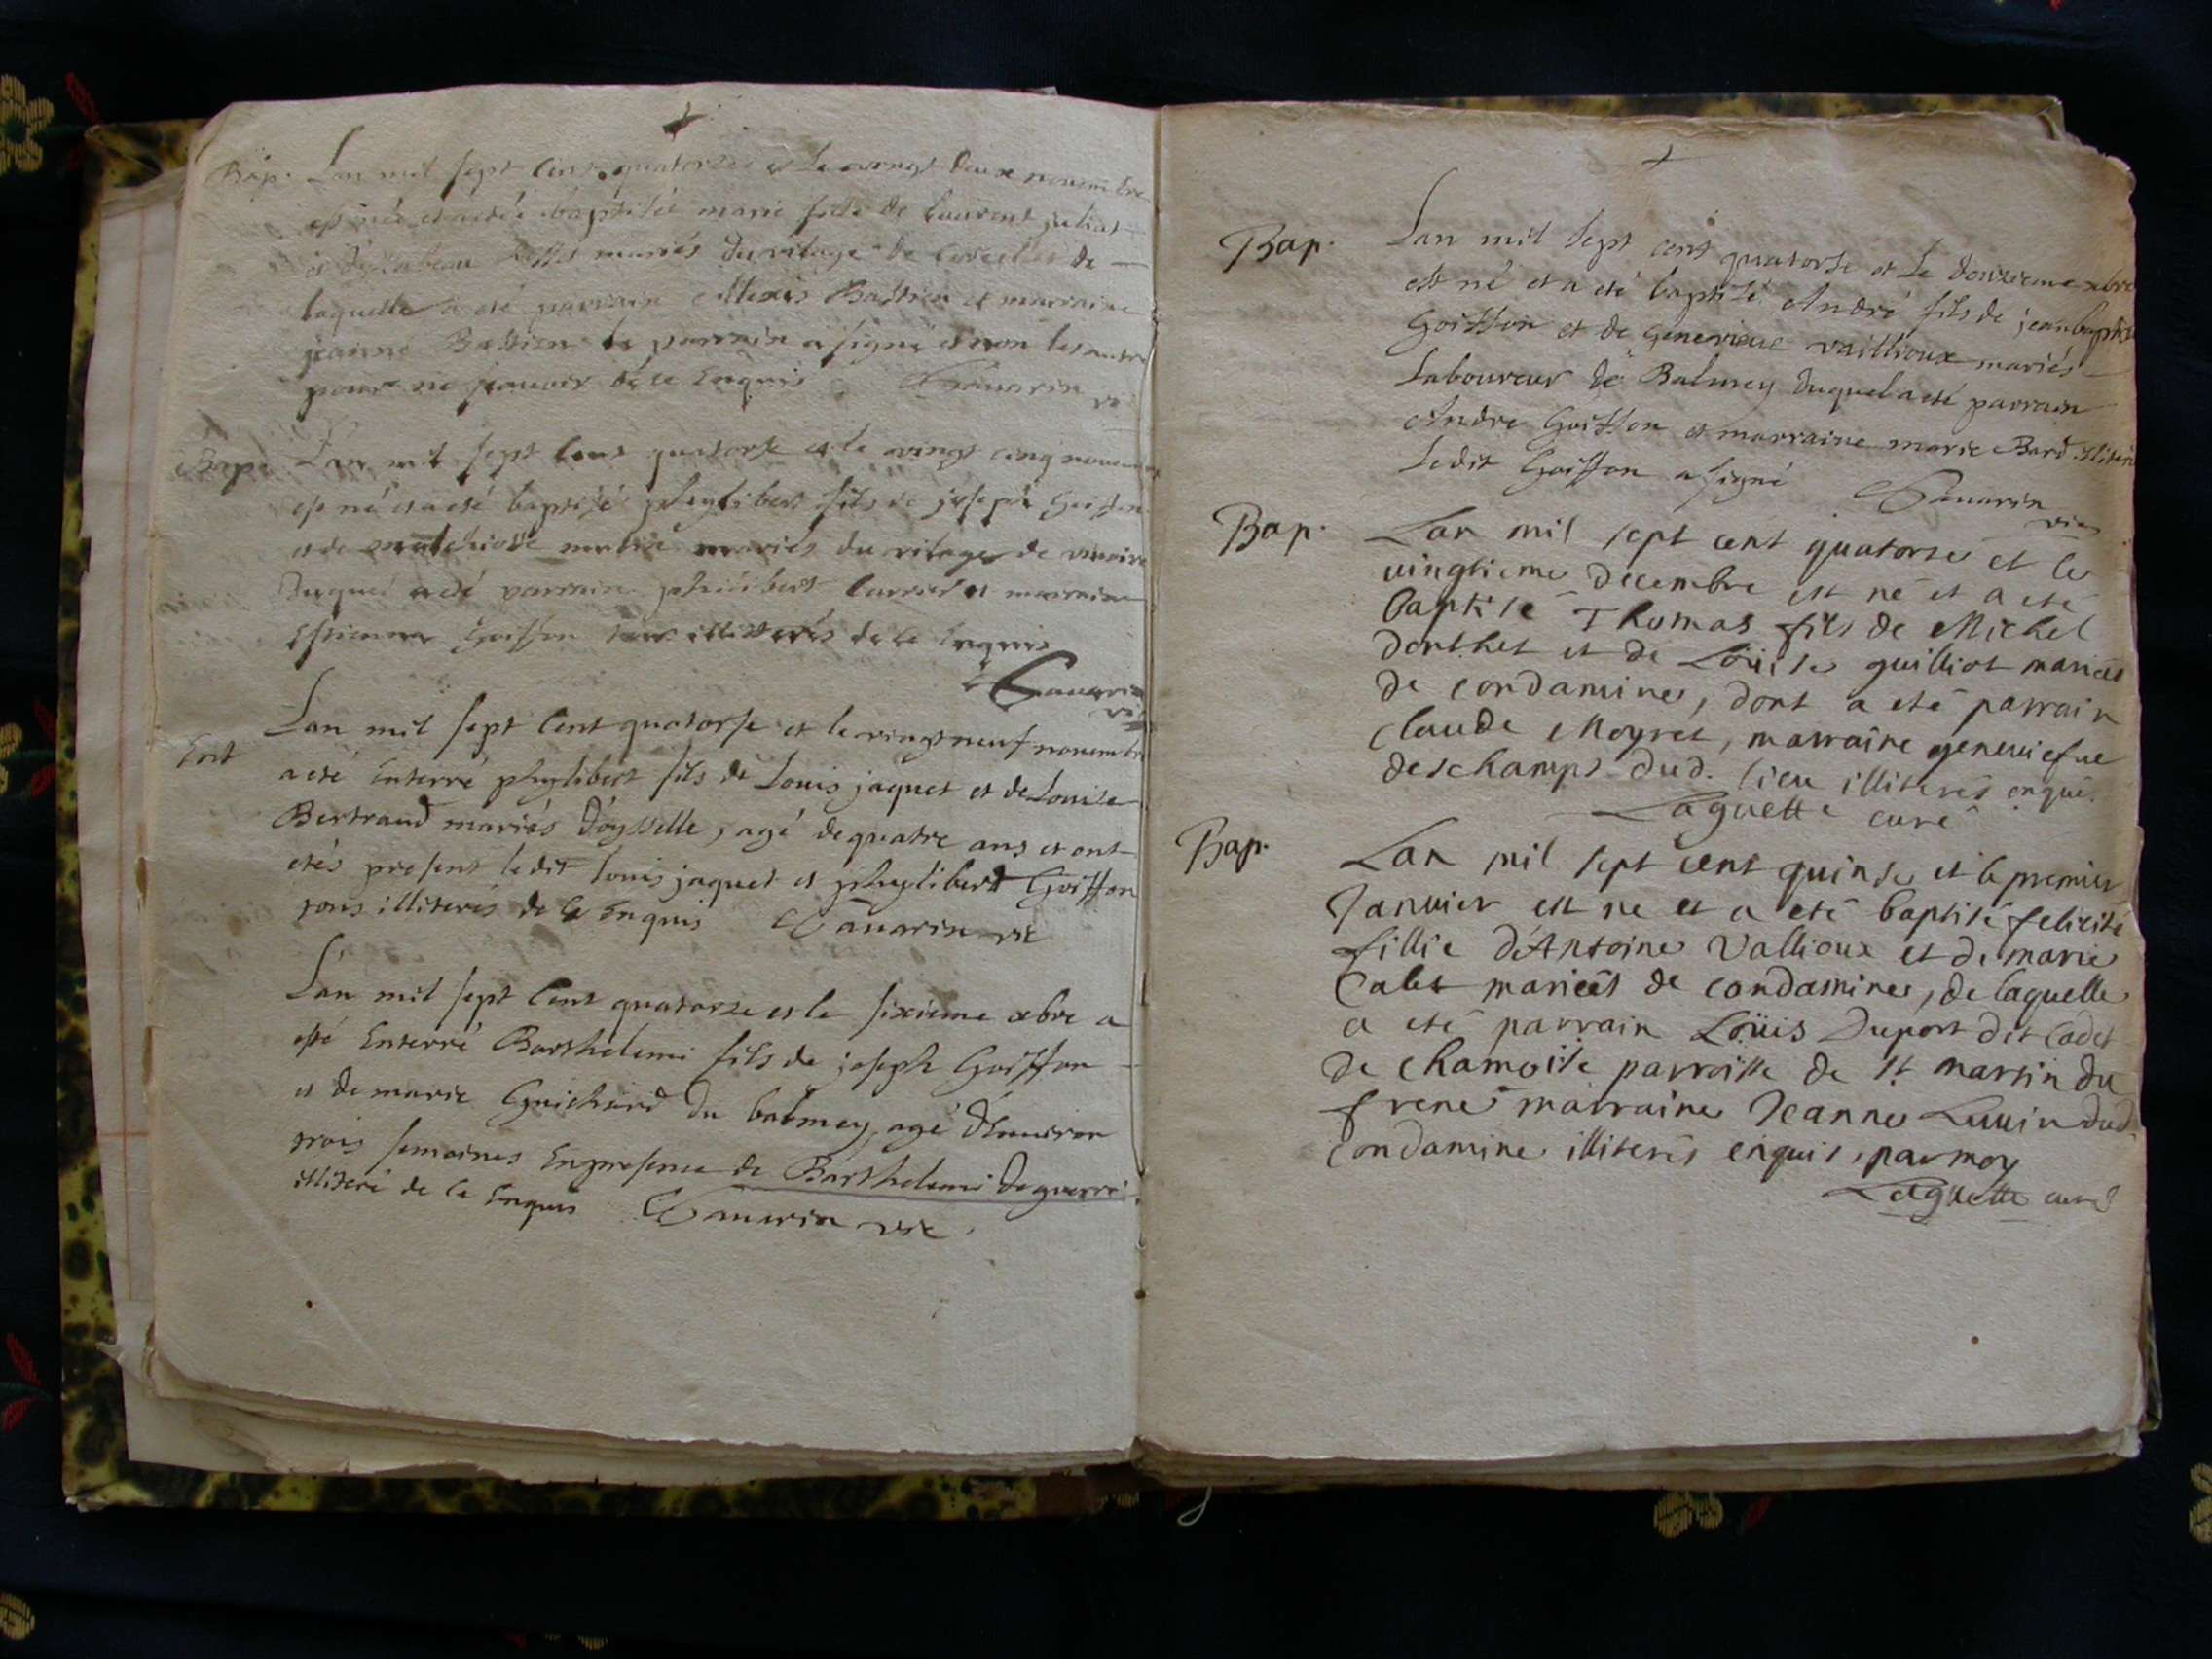 Bap. Lan mil sept cent quatorze et le vingt deux novembre
est née et a eté baptisée marie fille de laurent juliat
et mariés du vilage de de
laquelle a eté parrain Allexis Bastien et marraine
jeanne Bastien le parrain a signé et non les autre
pour ne scavoir de ce Enquis Tamarin vic
Bap. Lan mil sept cent quatorse et le vingt cinq novembre
est né et a eté baptisé phylibert fils de joseph Goiffon
et de mariés du vilage de
duquel a eté parrain philibert et marraine
Estienne Goiffon tous illiterés de ce Enquis
Tamarin vic
Ent Lan mil sept Cent quatorse et le vingt neuf novembre
a eté Enterré phylibert fils de Louis jaquet et de Louise
Bertrand mariés d'oysselle, agé de quatre ans et ont
etés present ledit louis jaquet et phylibert Goiffon
tous illiterés de ce Enquis Tamarin vic
Lan mil sept Cent quatorze et le sixieme xbre a
esté Enterré Barthelemi fils de joseph Goiffon
et de marie Guichard du balmay, agé d'Environ
trois semaines En presence de Barthelemi Deguerri
illiteré de ce Enquis Tamarin vic
Bap. Lan mil sept cent quatorse et le douzieme xbre
est né et a eté baptisé André fils de jean baptiste
Goiffon et de Genevieve vaillioux mariés
Laboureur de Balmey duquel a eté parrain
Andre Goiffon et marraine marie Bard illiteré
Ledit Goiffon a signé Tamarin
vic
Bap. Lan mil sept cent quatorse et le
vingtieme decembre est né et a eté
baptisé Thomas fils de Michel
Donthet et de Loüise guilliot mariés
de condamine, dont a eté parrain
Claude Moyret, marraine geneuiefue
deschamps dud. lieu illiterés enqui.
Laguette curé
Bap. Lan mil sept cent quinse et le premier
Januier est ne et a eté baptisé felicité
fillie d'Antoine Vallioux et de marie
Cabet mariés de condamine, de laquelle
a eté parrain Loüis Duport dit Cadet
de chamoise parroisse de st martin du
frene marraine Jeanne Luuin dud.
Condamine illiterés enquis, par moy
Laguette curé